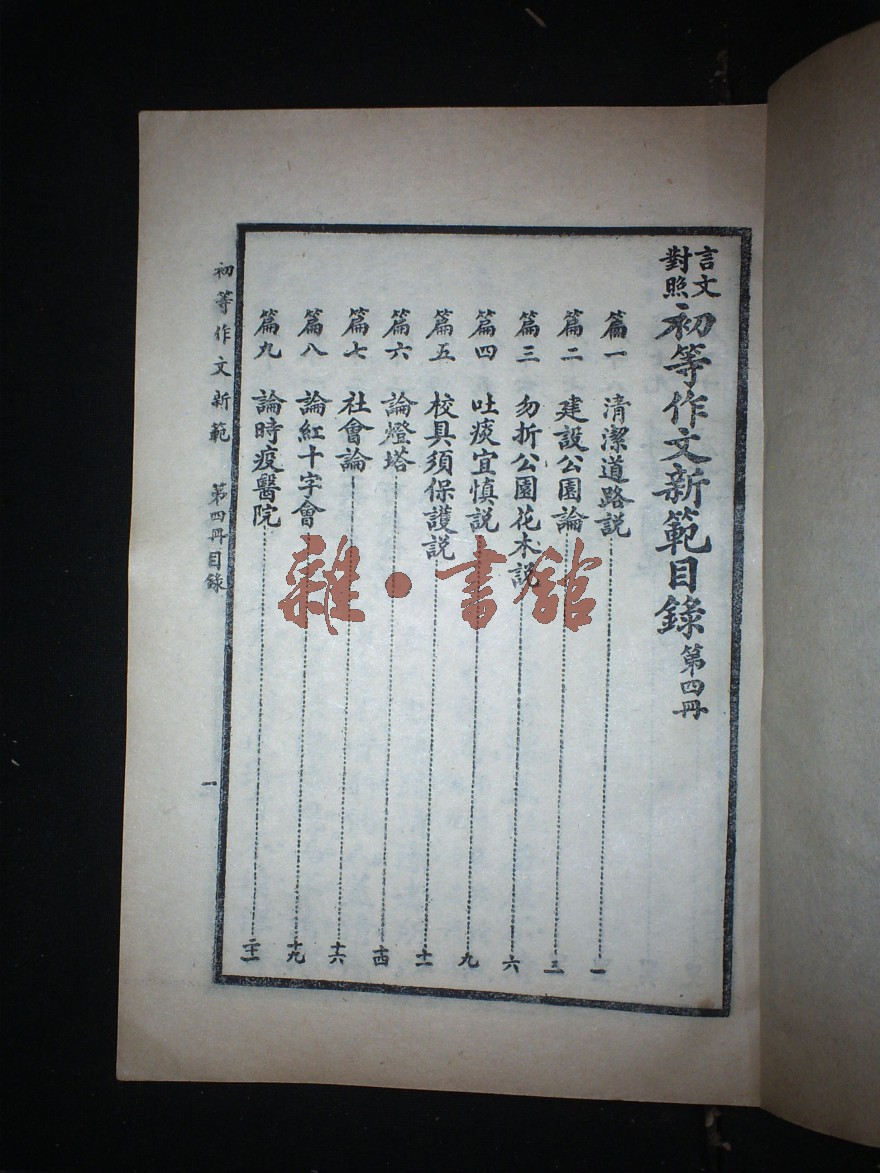 言文對照初等作文新範目錄 第四冊
篇一 清潔道路説 一
篇二 建設公園論 三
篇三 勿折公園花木説 六
篇四 吐痰宜慎説 九
篇五 校具須保護説 十一
篇六 論燈塔 十四
篇七 社會論 十六
篇八 論紅十字會 十九
篇九 論時疫醫院 二十一
初等作文新範 第四冊目錄 一
雜·書館